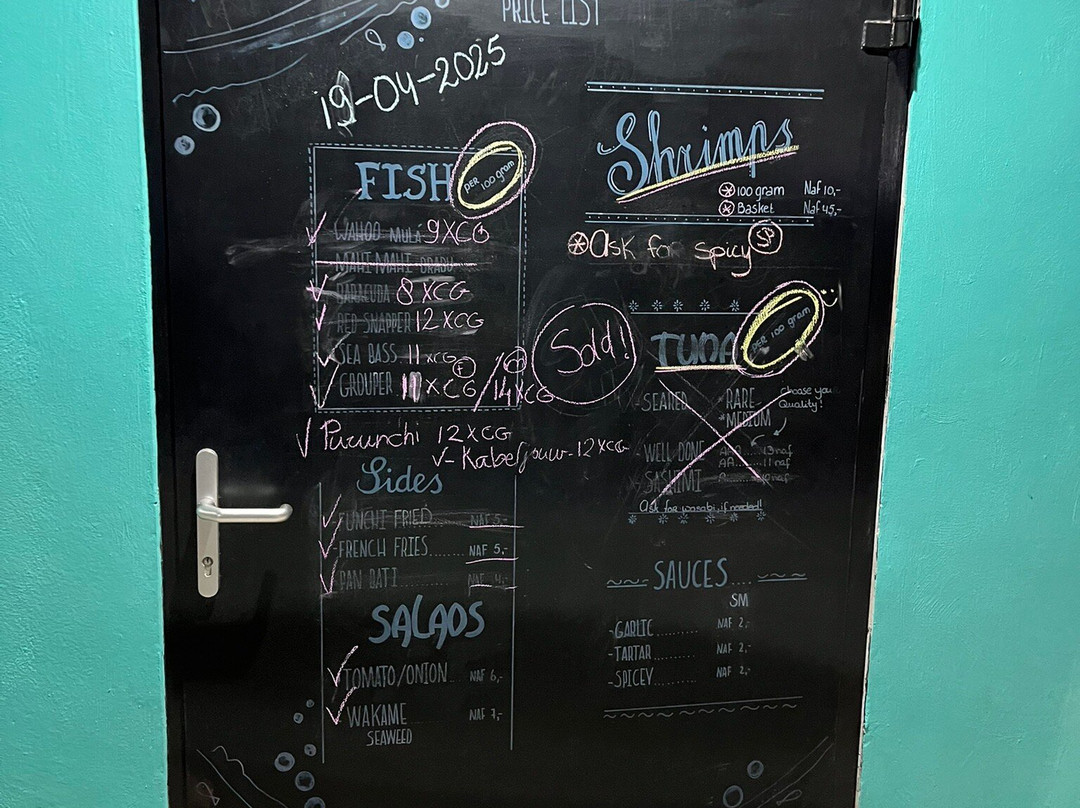 PRICE LIST
19-04-2025
FISH
PER 100 gram
WAHOO MULA 9XCG
MAHI MAHI DRADU
BARACUDA 8 XCG
RED SNAPPER 12XCG
SEA BASS 11 XCG
GROUPER XCG / 14XCG
Purunchi 12XCG
Kabeljouw-12XCG
Sides
FUNCHI FRIED NAF 5,-
-FRENCH FRIES....... NAF 5,-
PAN BATI NAF 4,-
SALADS
TOMATO/ONION.. NAF 6,-
WAKAME NAF 7,-
SEAWEED
Shrimps
100 gram Naf 10,-
Basket Naf 45,-
Ask for spicy SP
Sold!
TUNA
PER 100 gram
-SEARED RARE
MEDIUM
choose your
Quality!
-WELL DONE
AA......11 naf
-SASHIMI
Ask for wasabi, if needed!
SAUCES....
SM
-GARLIC.......... NAF 2,-
-TARTAR.......... NAF 2,-
-SPICEY.......... NAF 2,-